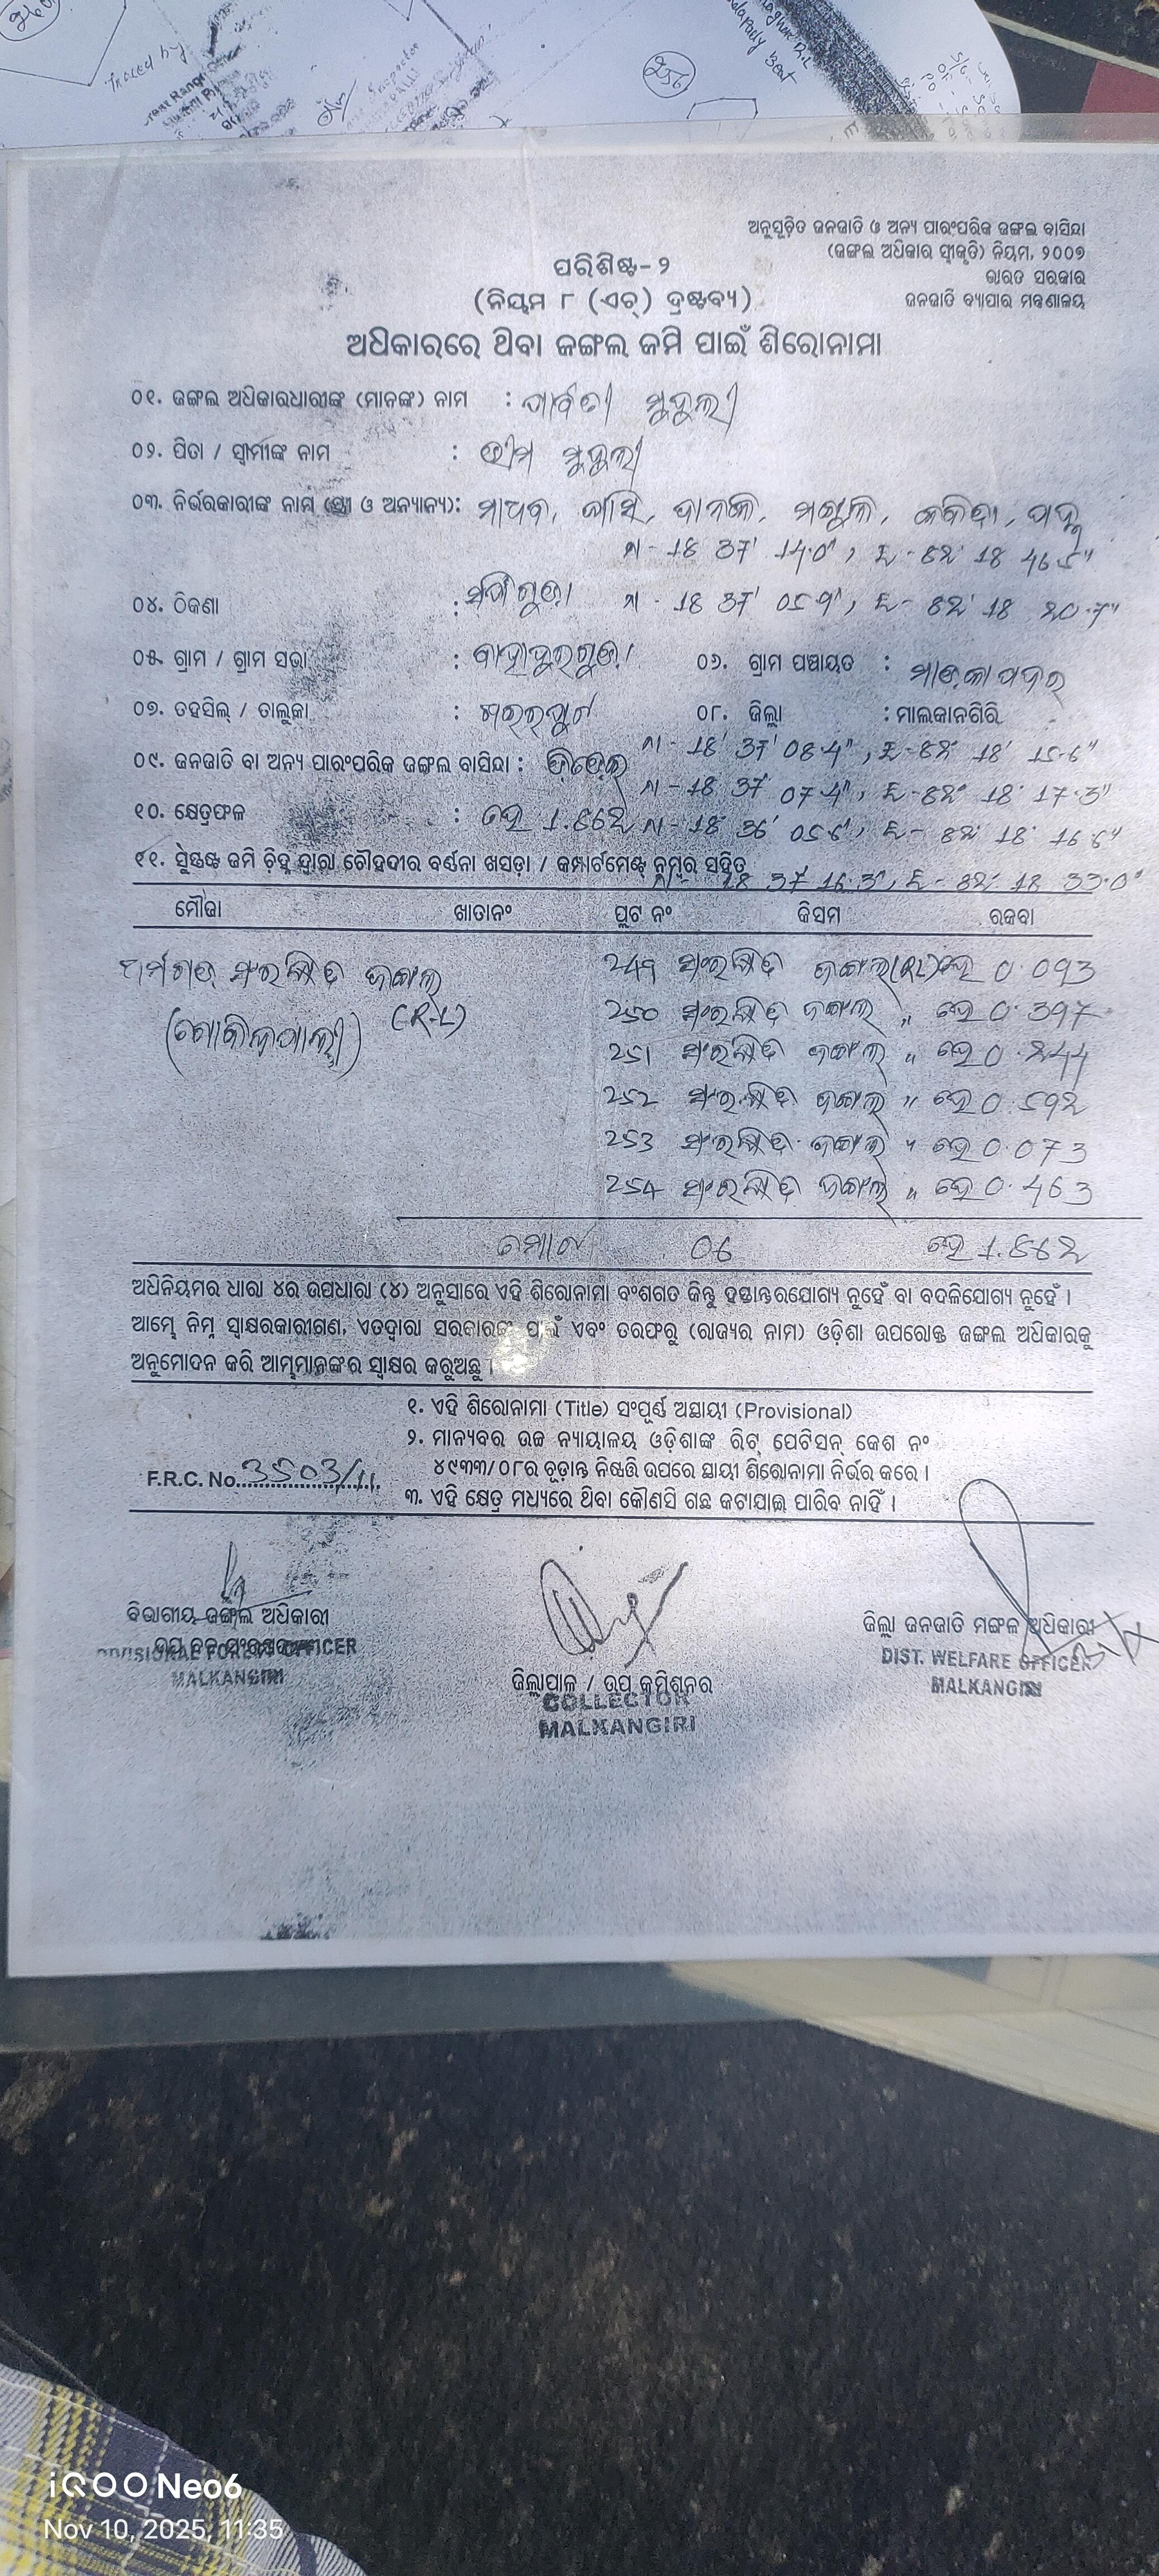 256
Traced by
ଅନୁସୂଚିତ ଜନଜାତି ଓ ଅନ୍ୟ ପାରଂପରିକ ଜଙ୍ଗଲ ବାସିନ୍ଦା
(ଜଙ୍ଗଲ ଅଧିକାର ସ୍ୱୀକୃତି) ନିୟମ, ୨୦୦୭
ଭାରତ ସରକାର
ଜନଜାତି ବ୍ୟାପାର ମନ୍ତ୍ରଣାଳୟ
ପରିଶିଷ୍ଟ- ୨
(ନିୟମ ୮ (ଏଚ୍) ଦ୍ରଷ୍ଟବ୍ୟ)
ଅଧିକାରରେ ଥିବା ଜଙ୍ଗଲ ଜମି ପାଇଁ ଶିରୋନାମା
୦୧. ଜଙ୍ଗଲ ଅଧିକାରଧାରୀଙ୍କ (ମାନଙ୍କ) ନାମ : ପାର୍ବତୀ ମୁଦୁଲୀ
୦୨. ପିତା / ସ୍ୱାମୀଙ୍କ ନାମ : ଭୀମ ମୁଦୁଲୀ
୦୩. ନିର୍ଭରକାରୀଙ୍କ ନାମ (ସ୍ତ୍ରୀ ଓ ଅନ୍ୟାନ୍ୟ): ମାଧବ,
N - 18 37' 14.0", E - 82' 18 46.5"
୦୪. ଠିକଣା : N - 18 37' 05.9", E - 82' 18 20.7"
୦୫. ଗ୍ରାମ / ଗ୍ରାମ ସଭା : ବାହାଦୁରଗୁଡ଼ା ୦୬. ଗ୍ରାମ ପଞ୍ଚାୟତ :
୦୭. ତହସିଲ୍ / ତାଲୁକା : ଖଇରପୁଟ ୦୮. ଜିଲ୍ଲା : ମାଲକାନଗିରି
N - 18' 37' 08.4", E - 82° 18' 15.6"
୦୯. ଜନଜାତି ବା ଅନ୍ୟ ପାରଂପରିକ ଜଙ୍ଗଲ ବାସିନ୍ଦା :
N - 18 37' 07.4", E - 82° 18' 17.3"
୧୦. କ୍ଷେତ୍ରଫଳ : ହେ 1.862 N - 18° 36' 05.6", E - 82' 18' 16.6"
୧୧. ସୁସ୍ପଷ୍ଟ ଜମି ଚିହ୍ନ ଦ୍ୱାରା ଚୌହଦୀର ବର୍ଣନା ଖସଡ଼ା / କମ୍ପାର୍ଟମେଣ୍ଟ ନମ୍ବର ସହିତ
N - 18 37 16.3", E - 82' 18 33.0"
ମୌଜା ଖାତାନଂ ପ୍ଲଟ ନଂ କିସମ ରକବା
ସଂରକ୍ଷିତ ଜଙ୍ଗଲ 249 ସଂରକ୍ଷିତ ଜଙ୍ଗଲ(RL)ହେ 0.093
(R-L) 250 ସଂରକ୍ଷିତ ଜଙ୍ଗଲ " ହେ 0.397
251 ସଂରକ୍ଷିତ ଜଙ୍ଗଲ " ହେ 0.244
252 ସଂରକ୍ଷିତ ଜଙ୍ଗଲ " ହେ 0.592
253 ସଂରକ୍ଷିତ ଜଙ୍ଗଲ " ହେ 0.073
254 ସଂରକ୍ଷିତ ଜଙ୍ଗଲ " ହେ 0.463
ମୋଟ 06 ହେ 1.862
ଅଧିନିୟମର ଧାରା ୪ର ଉପଧାରା (୪) ଅନୁସାରେ ଏହି ଶିରୋନାମା ବଂଶଗତ କିନ୍ତୁ ହସ୍ତାନ୍ତରଯୋଗ୍ୟ ନୁହେଁ ବା ବଦଳିଯୋଗ୍ୟ ନୁହେଁ ।
ଆମ୍ଭେ ନିମ୍ନ ସ୍ୱାକ୍ଷରକାରୀଗଣ, ଏତଦ୍ୱାରା ସରକାରଙ୍କ ପାଇଁ ଏବଂ ତରଫରୁ (ରାଜ୍ୟର ନାମ) ଓଡ଼ିଶା ଉପରୋକ୍ତ ଜଙ୍ଗଲ ଅଧିକାରକୁ
ଅନୁମୋଦନ କରି ଆମ୍ଭମାନଙ୍କର ସ୍ୱାକ୍ଷର କରୁଅଛୁ ।
୧. ଏହି ଶିରୋନାମା (Title) ସଂପୂର୍ଣ ଅସ୍ଥାୟୀ (Provisional)
୨. ମାନ୍ୟବର ଉଚ୍ଚ ନ୍ୟାୟାଳୟ ଓଡ଼ିଶାଙ୍କ ରିଟ୍ ପେଟିସନ୍ କେଶ ନଂ
୪୯୩୩/୦୮ର ଚୂଡ଼ାନ୍ତ ନିଷ୍ପତ୍ତି ଉପରେ ସ୍ଥାୟୀ ଶିରୋନାମା ନିର୍ଭର କରେ ।
F.R.C. No. 3503/11
୩. ଏହି କ୍ଷେତ୍ର ମଧ୍ୟରେ ଥିବା କୌଣସି ଗଛ କଟାଯାଇ ପାରିବ ନାହିଁ ।
ବିଭାଗୀୟ ଜଙ୍ଗଲ ଅଧିକାରୀ
DIVISIONAL FOREST OFFICER
MALKANGIRI
ଜିଲ୍ଲାପାଳ / ଉପ କମିଶନର
COLLECTOR
MALKANGIRI
ଜିଲ୍ଲା ଜନଜାତି ମଙ୍ଗଳ ଅଧିକାରୀ
DIST. WELFARE OFFICER
MALKANGIRI
iQOO Neo6
Nov 10, 2025, 11:35